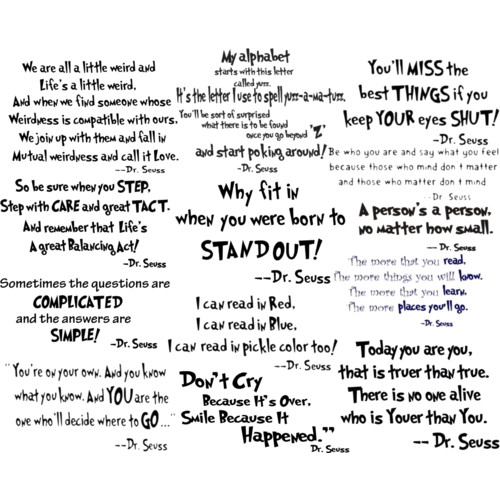 We are all a little weird and
Life's a little weird,
And when we find someone whose
Weirdness is compatible with ours,
We join up with them and fall in
Mutual weirdness and call it Love.
--Dr. Seuss
So be sure when you STEP,
Step with CARE and great TACT.
And remember that Life's
A great Balancing Act!
-Dr. Seuss
Sometimes the questions are
COMPLICATED
and the answers are
SIMPLE!
-Dr. Seuss
"You're on your own. And you know
what you know. And YOU are the
one who'll decide where to GO..."
--Dr. Seuss
My alphabet
starts with this letter
called yuzz.
It's the letter I use to spell yuzz-a-ma-tuzz.
You'll be sort of surprised
what there is to be found
once you go beyond 'Z'
and start poking around!
-Dr. Seuss
Why fit in
when you were born to
STAND OUT!
--Dr. Seuss
I can read in Red,
I can read in Blue,
I can read in pickle color too!
--Dr. Seuss
Don't Cry
Because It's Over,
Smile Because It
Happened."
Dr. Seuss
You'll MISS the
best THINGS if you
keep YOUR eyes SHUT!
-Dr. Seuss
Be who you are and say what you feel
because those who mind don t matter
and those who matter don t mind
--Dr Seuss
A person's a person,
no matter how small.
-- Dr. Seuss
The more that you read,
The more things you will know.
The more that you learn,
The more places you'll go.
-Dr. Seuss
Today you are you,
that is truer than true.
There is no one alive
who is Youer than You.
-- Dr. Seuss